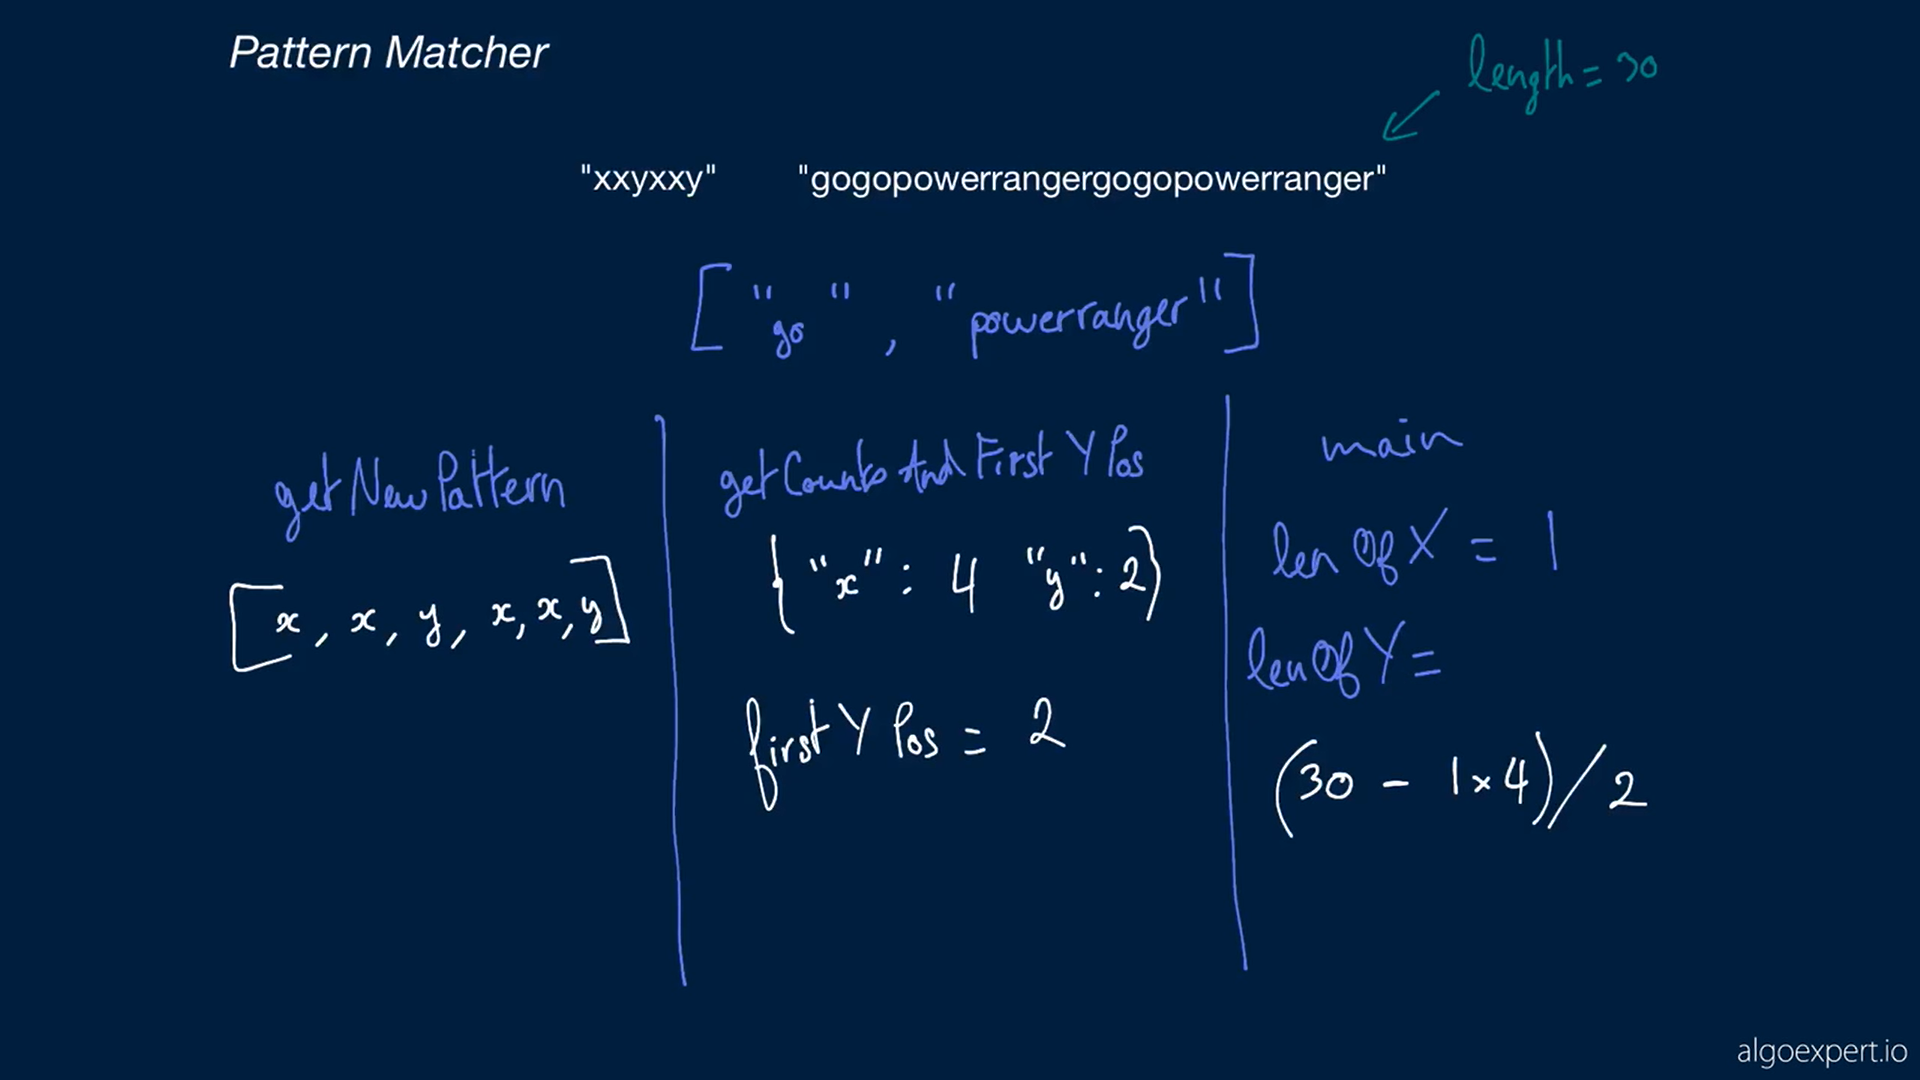 Pattern Matcher
length = 30
"xxyxxy" "gogopowerrangergogopowerranger"
["go", "powerranger"]
getNewPattern
[x, x, y, x, x, y]
getCountsAndFirstYPos
{"x": 4 "y": 2}
firstYPos = 2
main
lenOfX = 1
lenOfY =
(30 - 1x4)/2
algoexpert.io